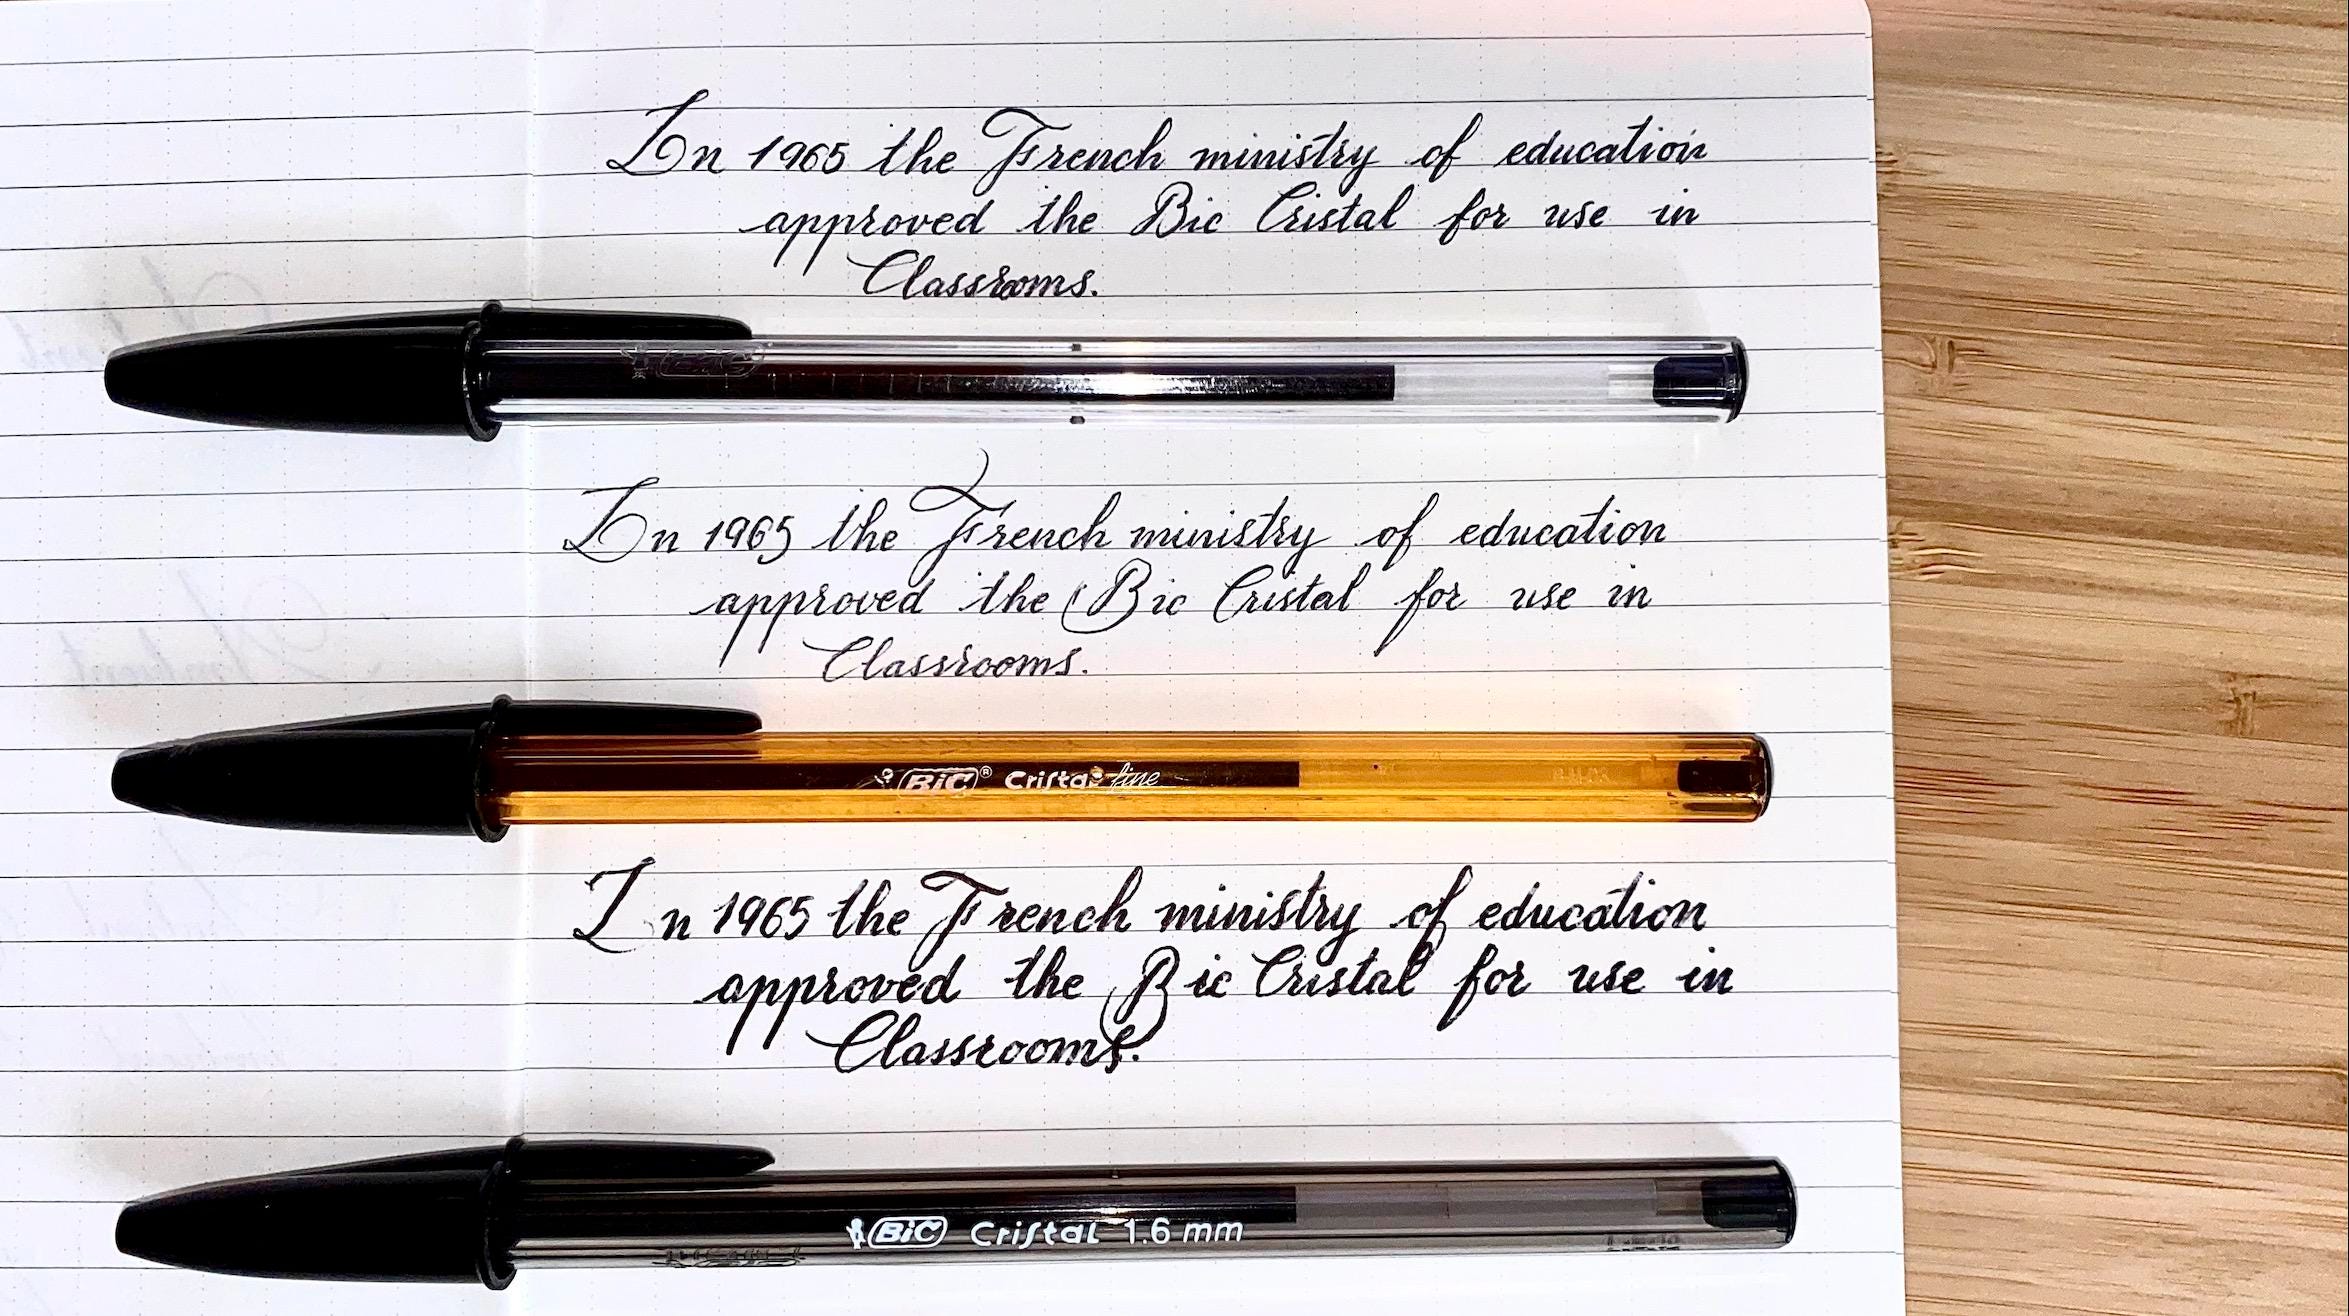 In 1965 the French ministry of education
approved the Bic Cristal for use in
Classrooms.
BiC
In 1965 the French ministry of education
approved the Bic Cristal for use in
Classrooms.
BiC® Cristal fine
In 1965 the French ministry of education
approved the Bic Cristal for use in
Classrooms.
BiC Cristal 1.6 mm